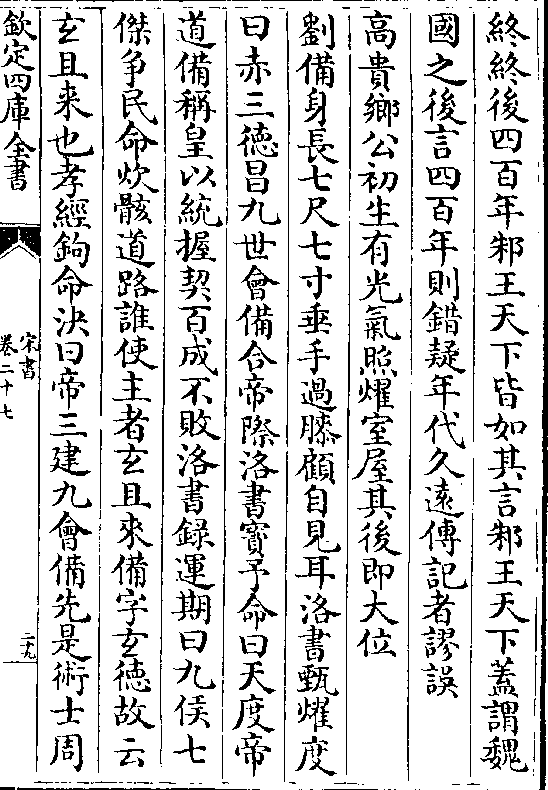 終終後四百年邾王天下皆如其言邾王天下蓋謂魏
國之後言四百年則錯疑年代久遠傳記者謬誤
高貴鄉公初生有光氣照燿室屋其後即大位
劉備身長七尺七寸垂手過膝顧自見耳洛書甄燿度
曰赤三德昌九世會備合帝際洛書寳予命曰天度帝
道備稱皇以統握契百成不敗洛書録運期曰九侯七
傑爭民命炊骸道路誰使主者玄且來備字玄德故云
玄且来也孝經鉤命決曰帝三建九會備先是術士周
欽定四庫全書
宋書
卷二十七
二十九